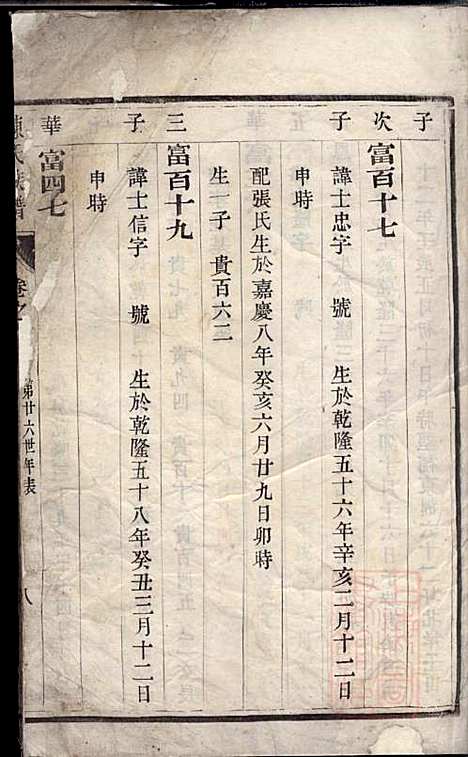 次
富百十七
子
諱士忠字　號　生於乾隆五十六年辛亥二月十二日
申時
配張氏生於嘉慶八年癸亥六月廿九日卯時
生一子 貴百六二
三
富百十九
子
諱士信字　號　生於乾隆五十八年癸丑三月十二日
申時
華
富四七
子
陳氏族譜
卷之
第廿六世年表
八